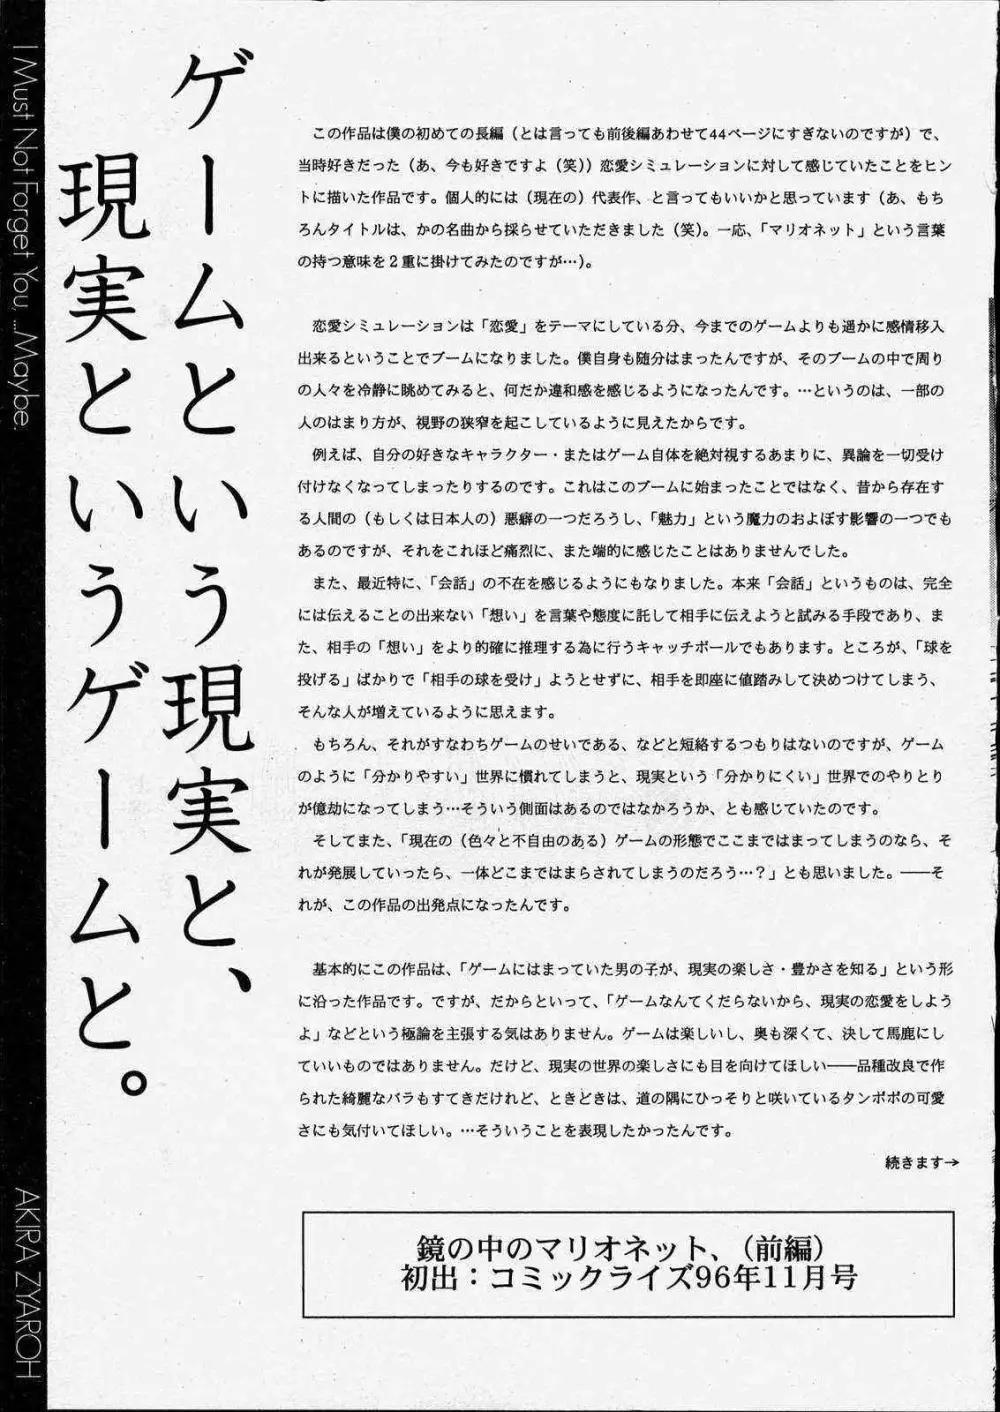 ゲームという現実と、
現実というゲームと。
I Must Not Forget You, ...Maybe.
AKIRA ZYAROH
この作品は僕の初めての長編（とは言っても前後編あわせて44ページにすぎないのですが）で、
当時好きだった（あ、今も好きですよ（笑））恋愛シミュレーションに対して感じていたことをヒン
トに描いた作品です。個人的には（現在の）代表作、と言ってもいいかと思っています（あ、もち
ろんタイトルは、かの名曲から採らせていただきました（笑）。一応、「マリオネット」という言葉
の持つ意味を２重に掛けてみたのですが…）。
恋愛シミュレーションは「恋愛」をテーマにしている分、今までのゲームよりも遥かに感情移入
出来るということでブームになりました。僕自身も随分はまったんですが、そのブームの中で周り
の人々を冷静に眺めてみると、何だか違和感を感じるようになったんです。…というのは、一部の
人のはまり方が、視野の狭窄を起こしているように見えたからです。
例えば、自分の好きなキャラクター・またはゲーム自体を絶対視するあまりに、異論を一切受け
付けなくなってしまったりするのです。これはこのブームに始まったことではなく、昔から存在す
る人間の（もしくは日本人の）悪癖の一つだろうし、「魅力」という魔力のおよぼす影響の一つでも
あるのですが、それをこれほど痛烈に、また端的に感じたことはありませんでした。
また、最近特に、「会話」の不在を感じるようにもなりました。本来「会話」というものは、完全
には伝えることの出来ない「想い」を言葉や態度に託して相手に伝えようと試みる手段であり、ま
た、相手の「想い」をより的確に推理する為に行うキャッチボールでもあります。ところが、「球を
投げる」ばかりで「相手の球を受け」ようとせずに、相手を即座に値踏みして決めつけてしまう、
そんな人が増えているように思えます。
もちろん、それがすなわちゲームのせいである、などと短絡するつもりはないのですが、ゲーム
のように「分かりやすい」世界に慣れてしまうと、現実という「分かりにくい」世界でのやりとり
が億劫になってしまう…そういう側面はあるのではなかろうか、とも感じていたのです。
そしてまた、「現在の（色々と不自由のある）ゲームの形態でここまではまってしまうのなら、そ
れが発展していったら、一体どこまではまらされてしまうのだろう…？」とも思いました。――そ
れが、この作品の出発点になったんです。
基本的にこの作品は、「ゲームにはまっていた男の子が、現実の楽しさ・豊かさを知る」という形
に沿った作品です。ですが、だからといって、「ゲームなんてくだらないから、現実の恋愛をしよう
よ」などという極論を主張する気はありません。ゲームは楽しいし、奥も深くて、決して馬鹿にし
ていいものではありません。だけど、現実の世界の楽しさにも目を向けてほしい――品種改良で作
られた綺麗なバラもすてきだけれど、ときどきは、道の隅にひっそりと咲いているタンポポの可愛
さにも気付いてほしい。…そういうことを表現したかったんです。
続きます→
鏡の中のマリオネット、（前編）
初出：コミックライズ96年11月号